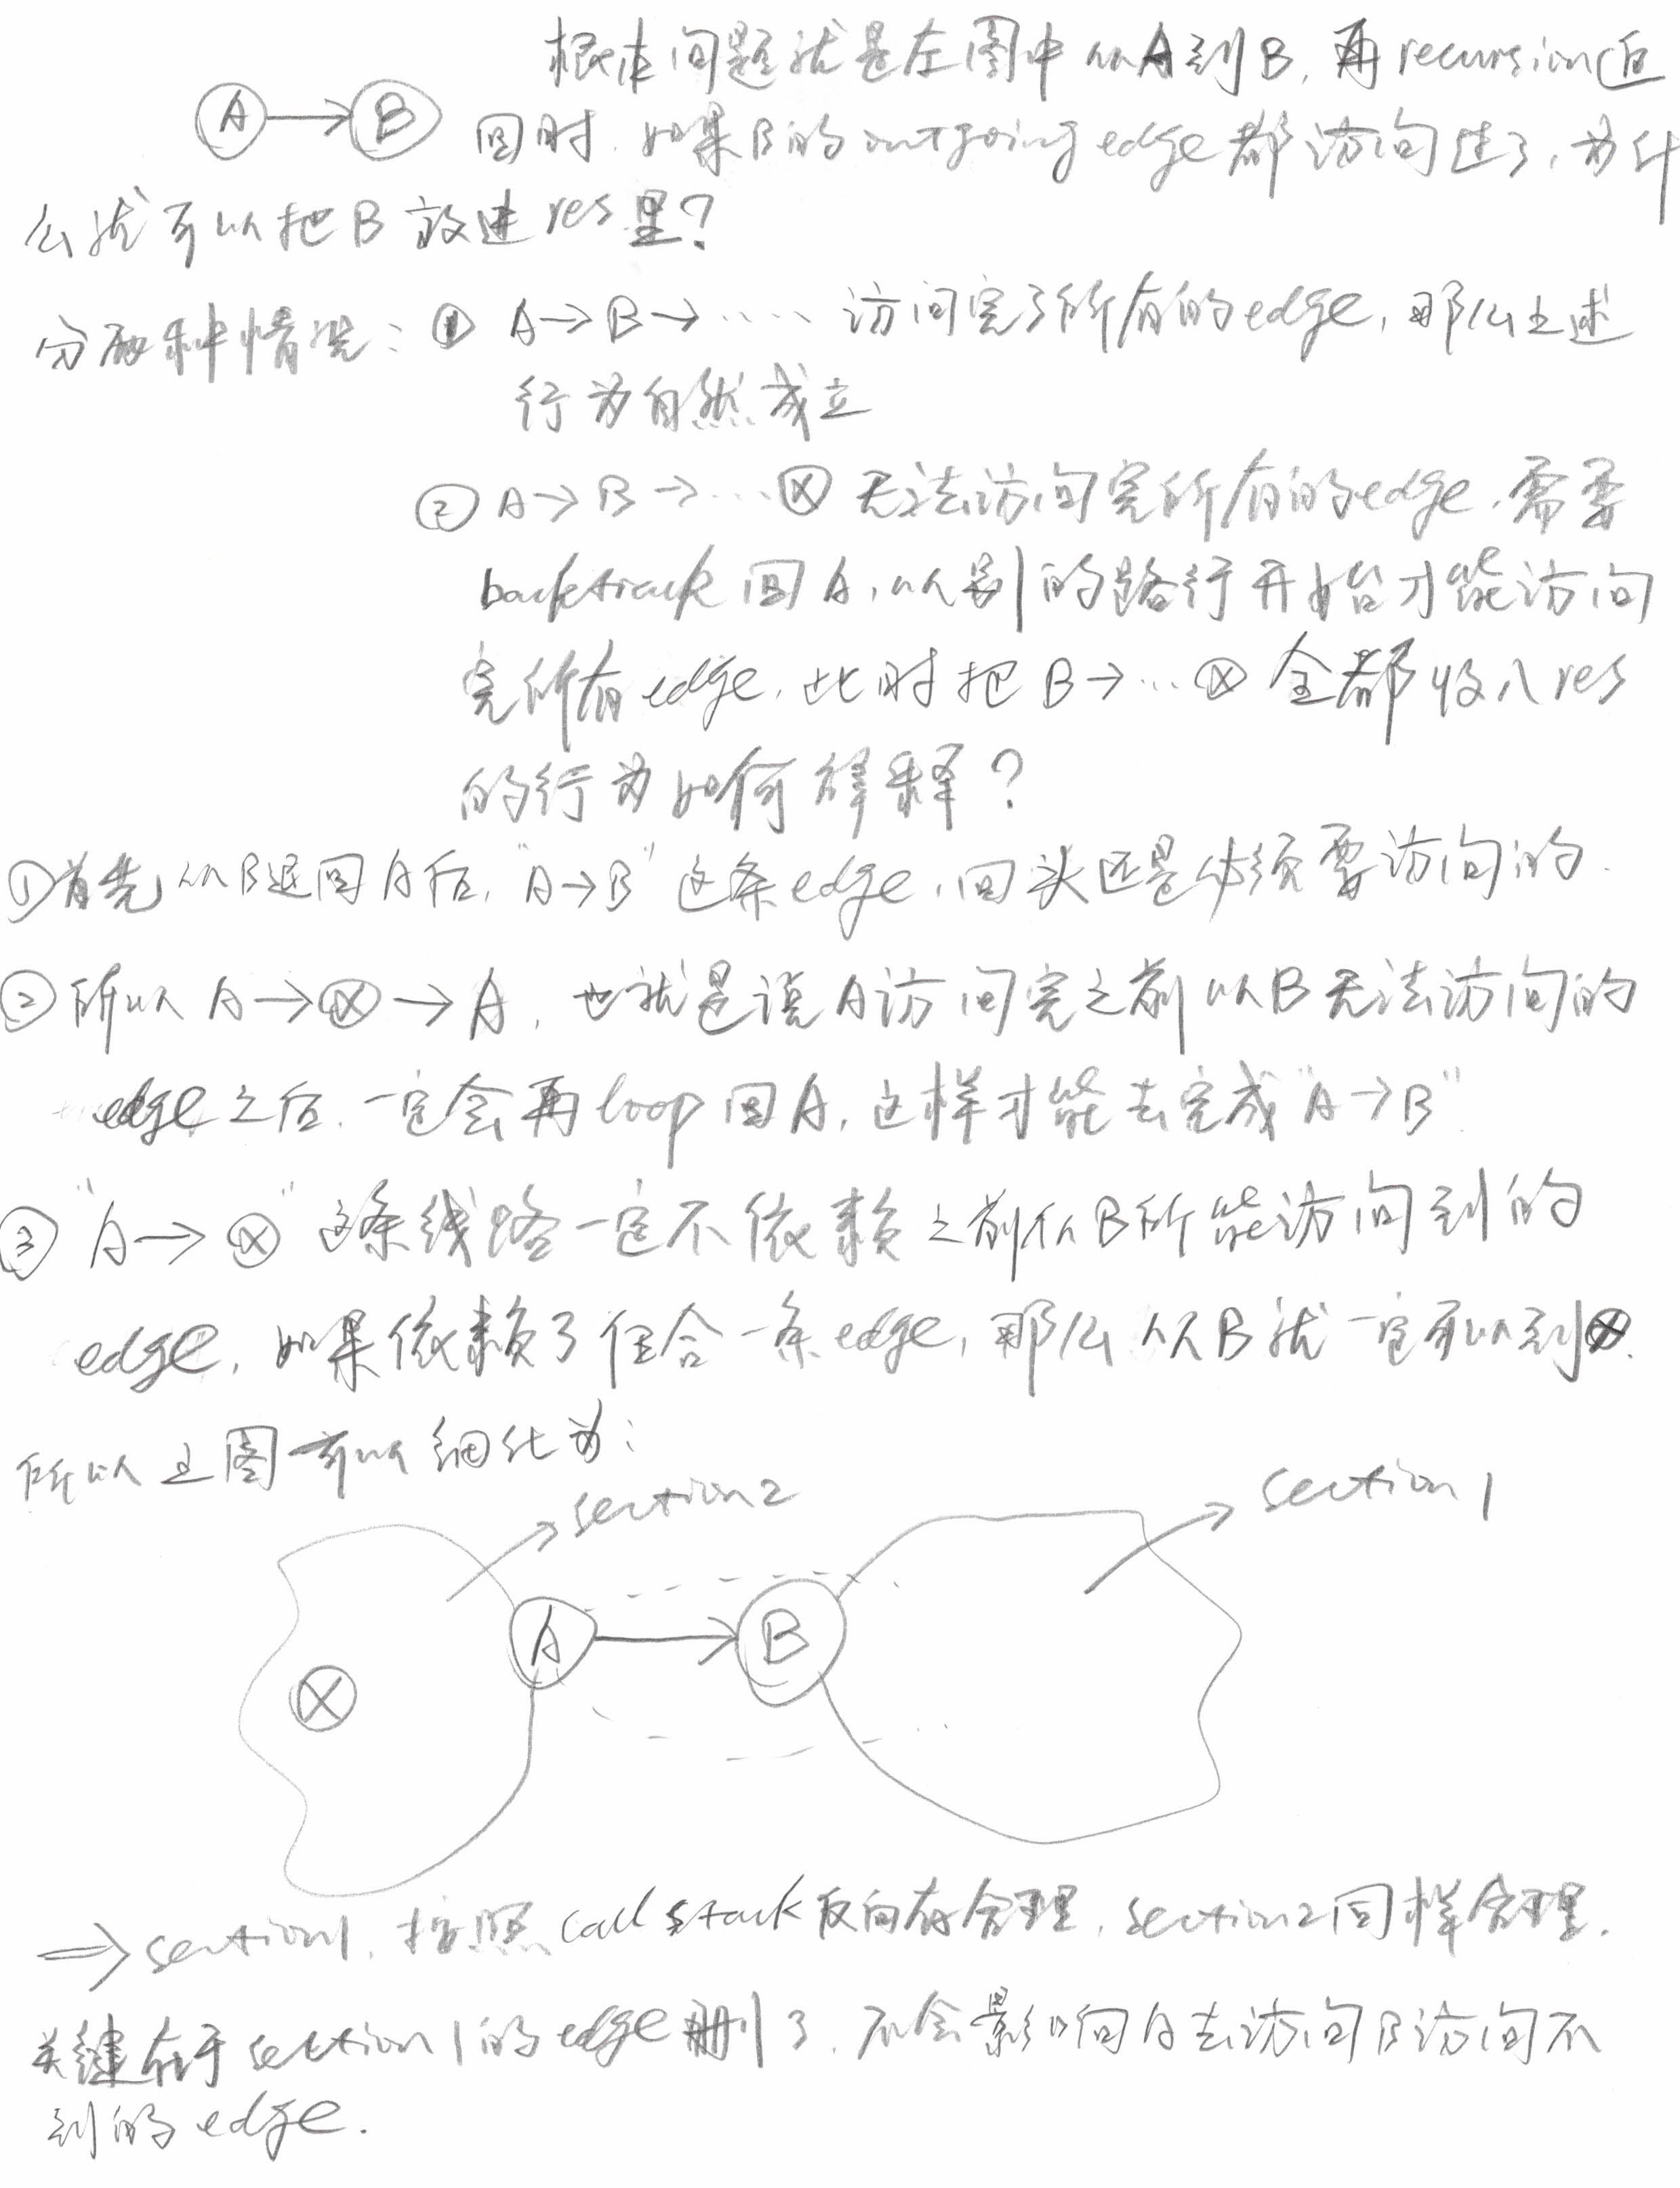 根本问题就是左图中从A到B，再recursion返
A → B
回时，如果B的outgoing edge都访问过了，为什
么就可以把B放进res里？
分两种情况：① A→B→····· 访问完了所有的edge，那么上述
行为自然成立
② A→B→...Ⓧ 无法访问完所有的edge，需要
backtrack回A，从别的路行开始才能访问
完所有edge，此时把B→...Ⓧ全都收入res
的行为如何解释？
①首先从B退回A后，"A→B"这条edge，回头还是必须要访问的．
②所以A→Ⓧ→A，也就是说A访问完之前从B无法访问的
edge之后，一定会再loop回A，这样才能去完成"A→B"
③"A→Ⓧ"这条线路一定不依赖之前从B所能访问到的
edge，如果依赖了任合一条edge，那么从B就一定可以到Ⓧ．
所以上图可以细化为：
section2
section1
A
B
X
⇒section1，按照call stack反向存合理，section2同样合理．
关键在于section1的edge删了，不会影响A去访问B访问不
到的edge．